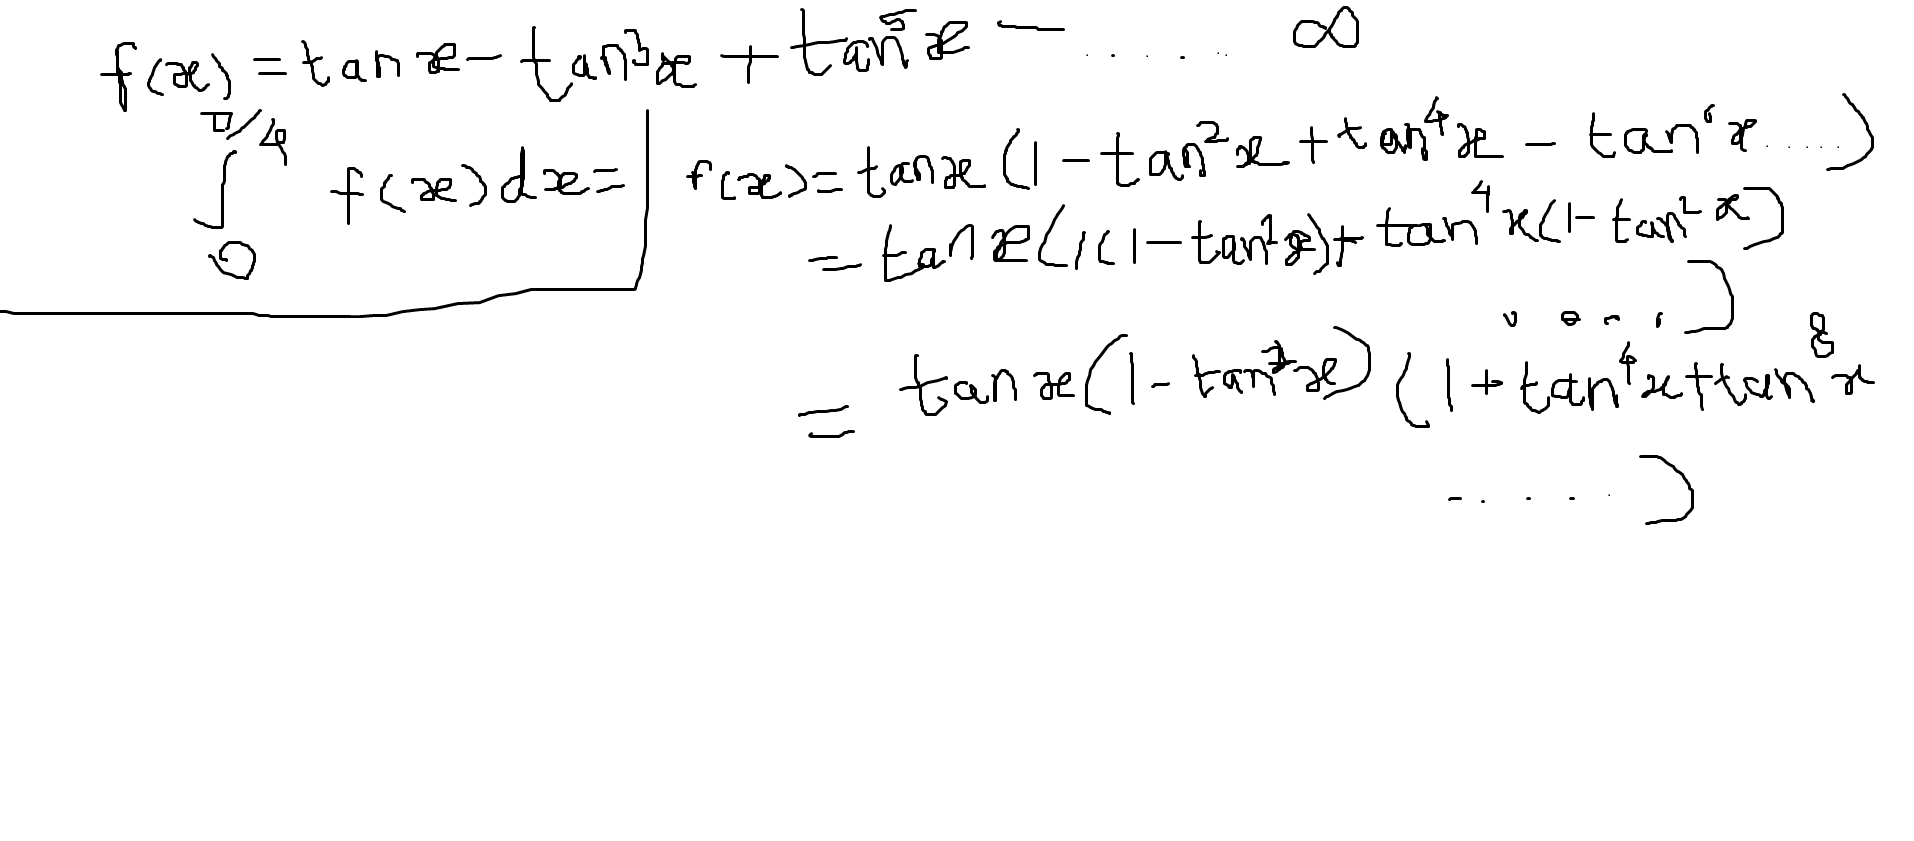 f(x) = tan x - tan³x + tan⁵x - ..... ∞
∫₀^π/4 f(x)dx =
f(x) = tanx (1 - tan²x + tan⁴x - tan⁶x .....)
= tanx (1(1 - tan²x) + tan⁴x(1 - tan²x)
.....)
= tanx (1 - tan²x) (1 + tan⁴x + tan⁸x
.....)